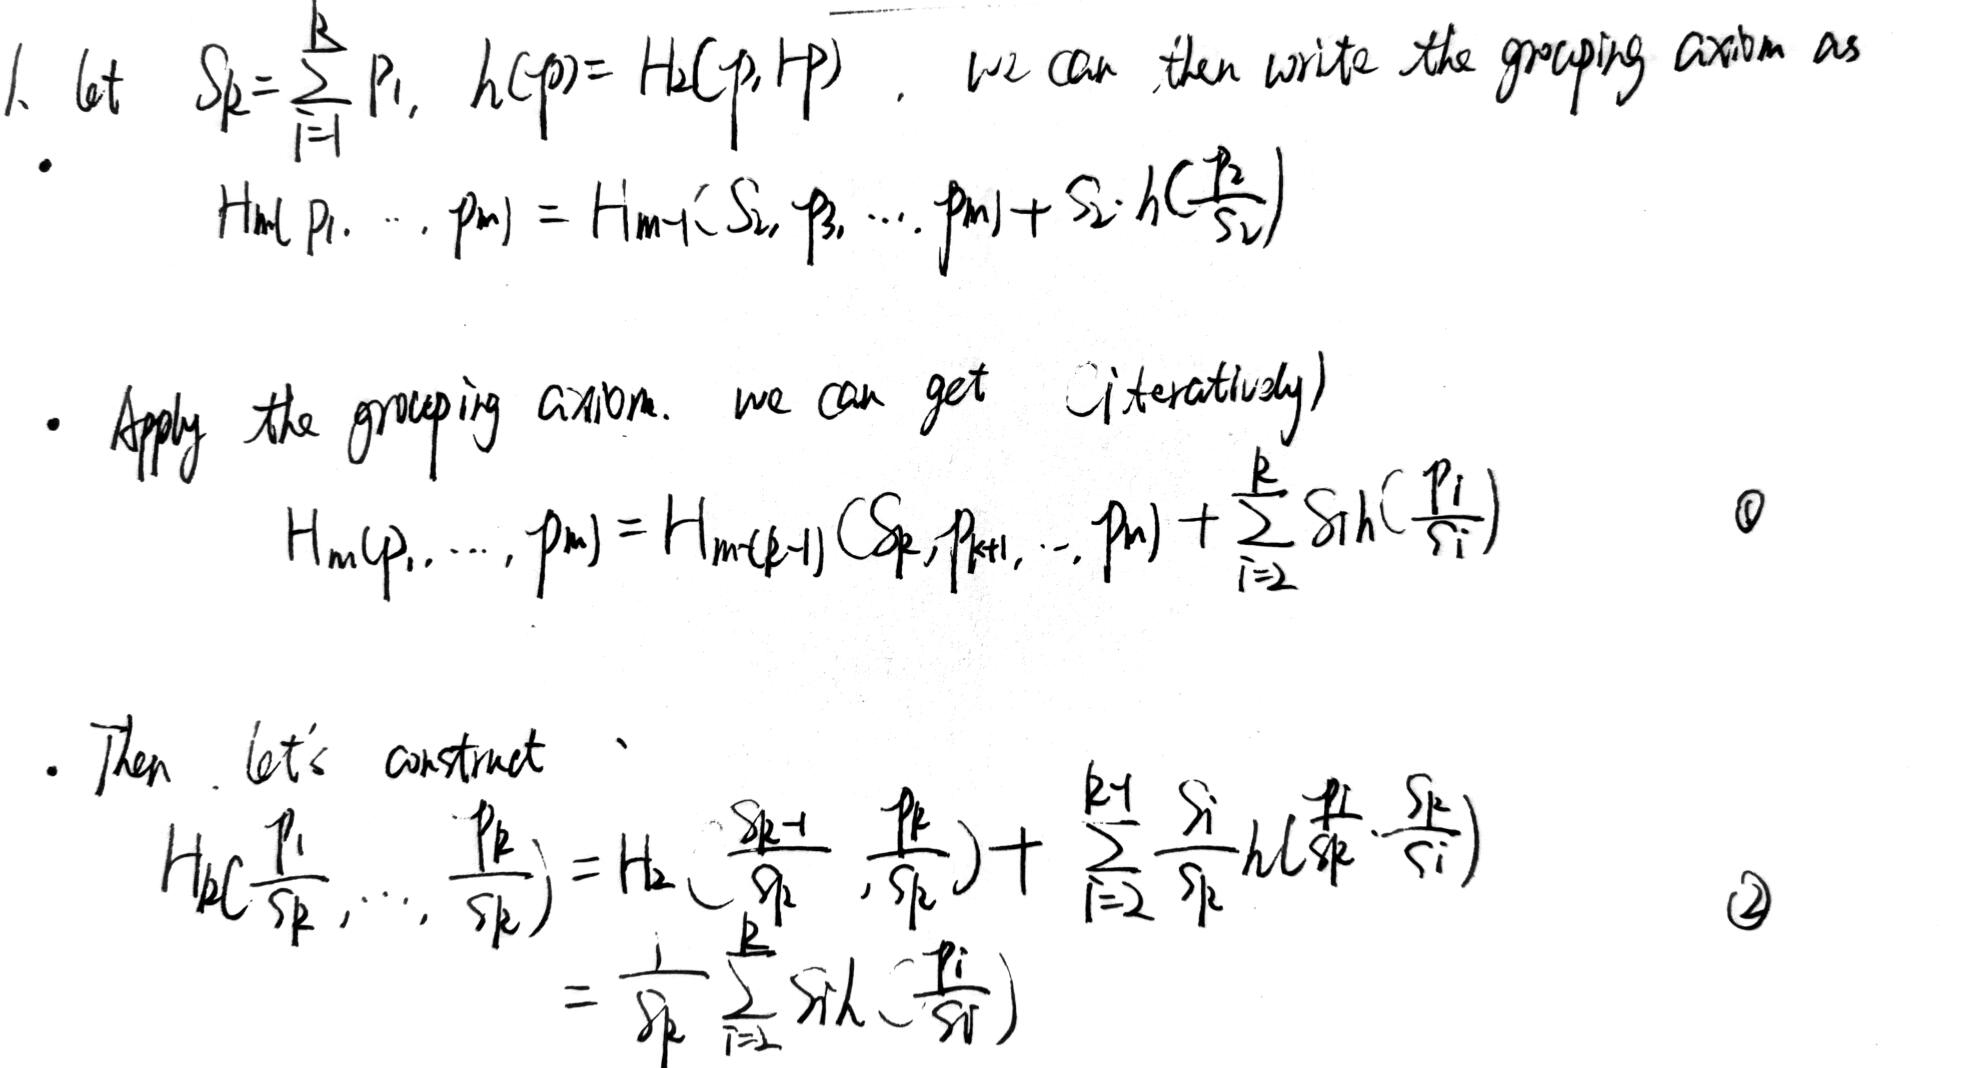 1. let S_k = \sum_{i=1}^{k} p_i, h(p) = H_2(p, 1-p), we can then write the grouping axiom as
• H_m(p_1, ..., p_m) = H_{m-1}(S_2, p_3, ..., p_m) + S_2 · h(\frac{p_2}{S_2})
• Apply the grouping axiom. we can get (iteratively)
H_m(p_1, ..., p_m) = H_{m-(k-1)}(S_k, p_{k+1}, ..., p_m) + \sum_{i=2}^{k} S_i h(\frac{p_i}{S_i}) ①
• Then. let's construct
H_k(\frac{p_1}{S_k}, ..., \frac{p_k}{S_k}) = H_2(\frac{S_{k-1}}{S_k}, \frac{p_k}{S_k}) + \sum_{i=2}^{k-1} \frac{S_i}{S_k} h(\frac{p_i}{S_k} · \frac{S_k}{S_i}) ②
= \frac{1}{S_k} \sum_{i=2}^{k} S_i h(\frac{p_i}{S_i})